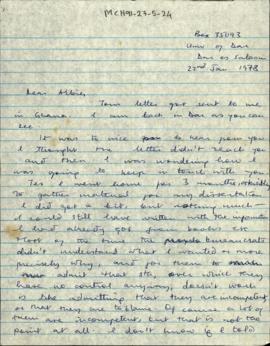 MCH91-27-5-24
Box 35093
Univ of Dar
Dar es Salaam
22nd Jan 1978
Dear Albie,
Your letter got sent to me
in Ghana. I am back in Dar as you can
see.
It was so nice to hear from you
I thought the letter didn't reach you
and then I was wondering how I
was going to keep in touch with you
Yes I went home for 3 months
to gather material for my dissertation
I did get a bit but not much -
I could still have written with the
I had already got from books etc
Most of the time the bureaucrats
didn't understand what I wanted to more
precisely why, and for them to
admit that sth, over which they
have no control anyway, doesn't work
is like admitting that they are incompetent
or that they are to blame. Of course a lot of
them are incompetent, but that is not the
point at all. I don't know if I told